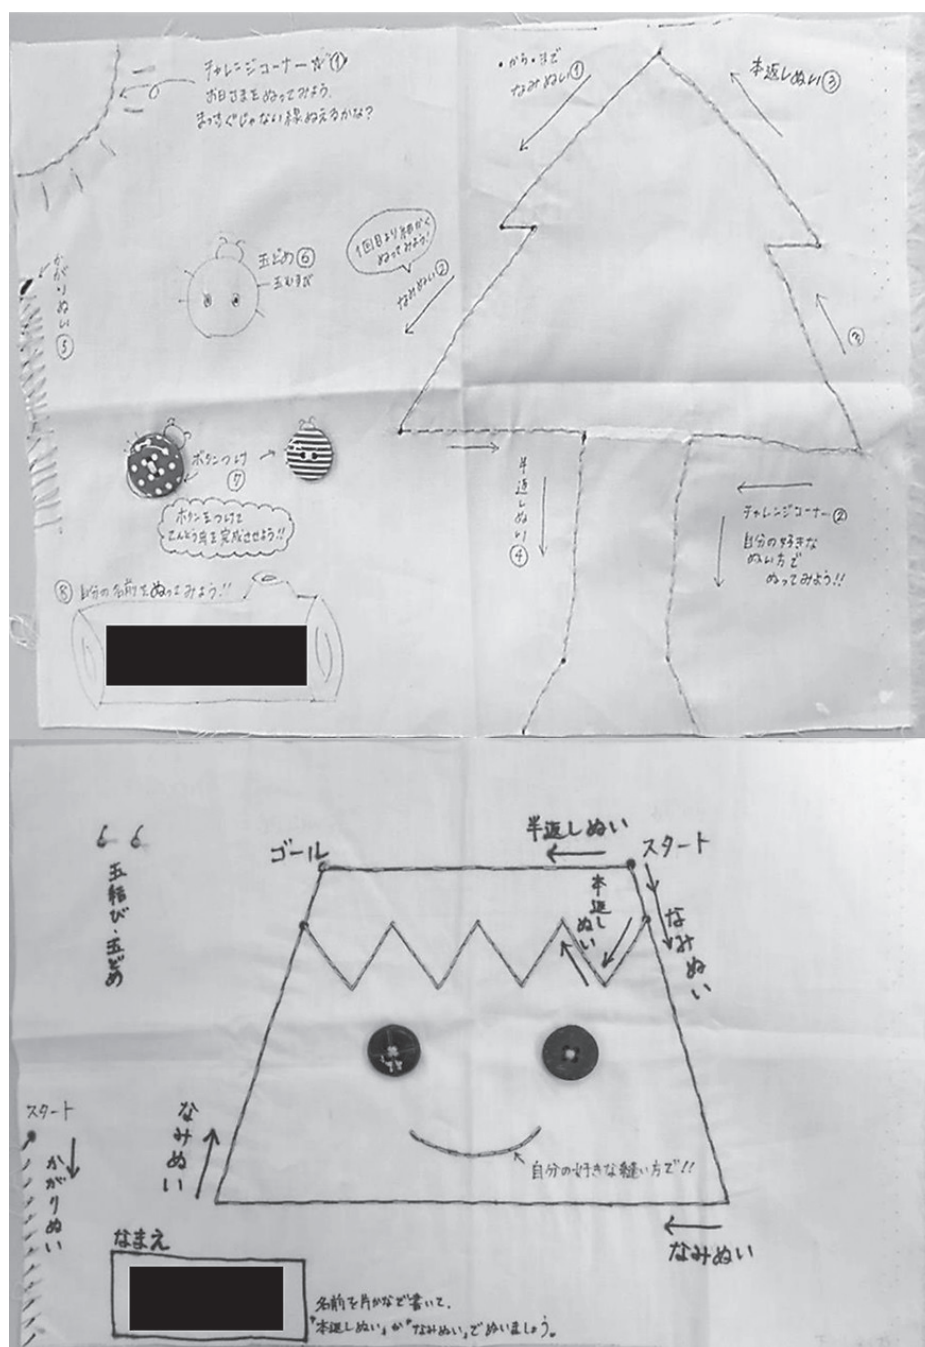 チャレンジコーナー☆①
お日さまをぬってみよう。
まっすぐじゃない線ぬえるかな?
・から・まで
なみぬい①
本返しぬい③
1回目より細かく
ぬってみよう!
なみぬい②
玉どめ⑥
玉むすび
かがりぬい⑤
③
ボタンつけ
⑦
ボタンをつけて
てんとう虫を完成させよう!!
半返しぬい④
チャレンジコーナー②
自分の好きな
ぬい方で
ぬってみよう!!
⑧自分の名前をぬってみよう!!
半返しぬい
スタート
ゴール
本返し
ぬい
なみぬい
玉結び・玉どめ
スタート
かがりぬい
なみぬい
自分の好きな縫い方で!!
なみぬい
なまえ
名前を片かなで書いて、
"本返しぬい"か"なみぬい"でぬいましょう。